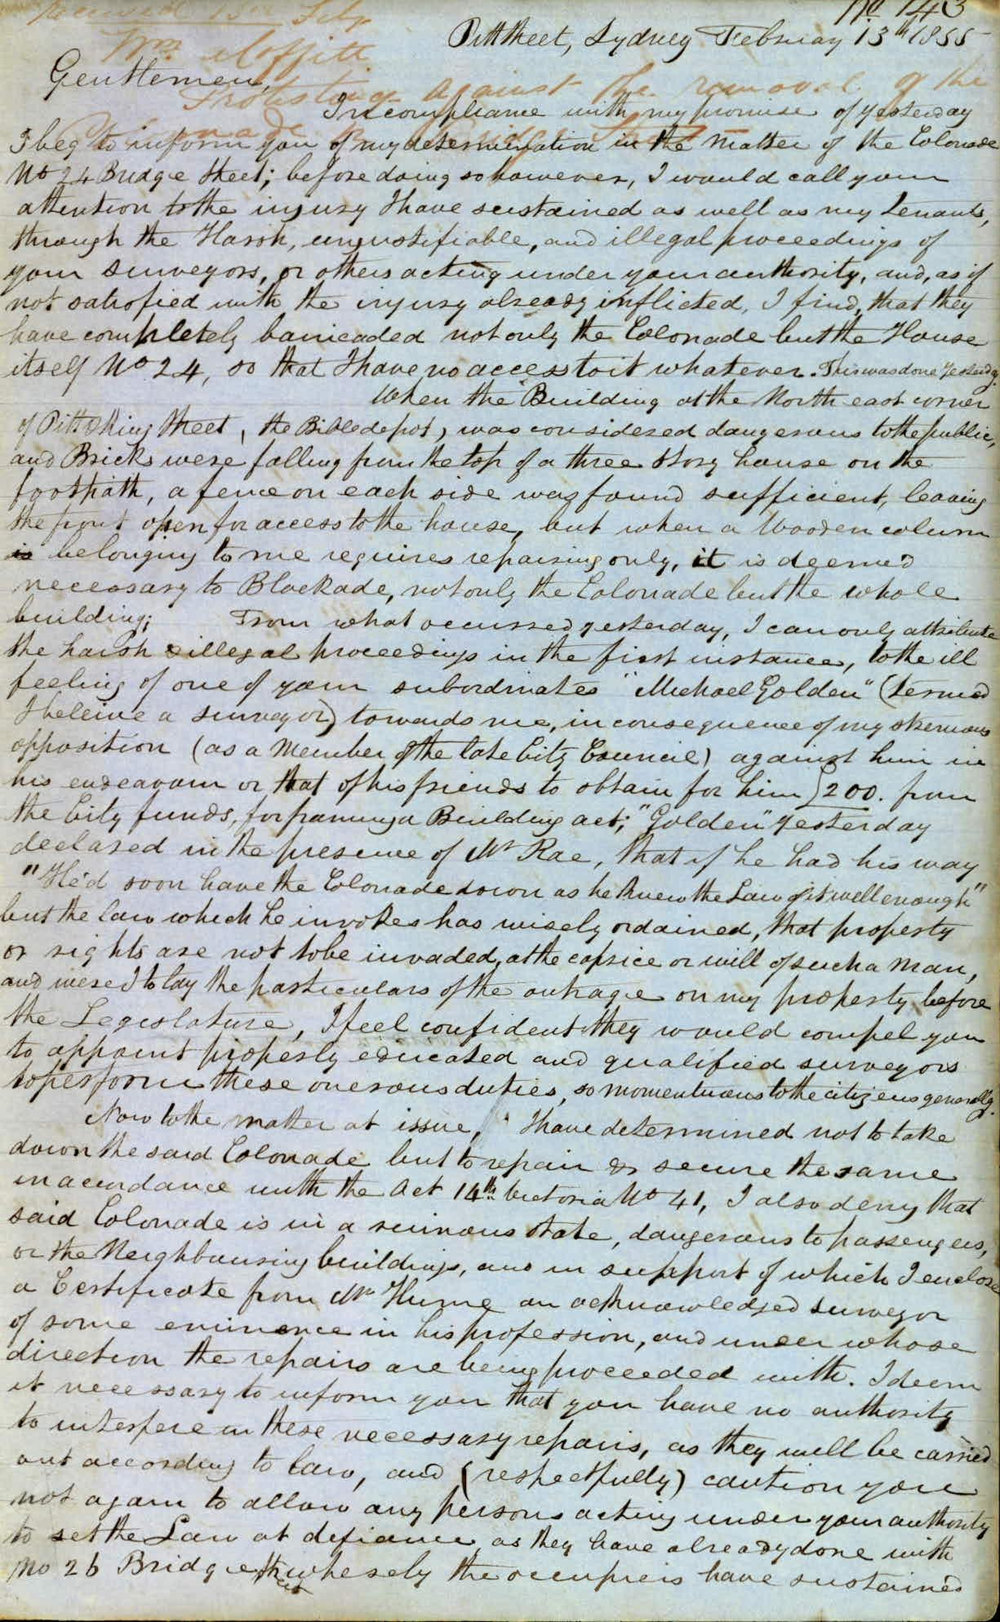 Received 13th Feby
No 143
Pitt Street, Sydney February 13th 1855
Wm Moffitt
Gentlemen,
Protesting against the removal of the
In compliance with my promise of yesterday
Colonnade Bridge Street
I beg to inform you of my determination in the matter of the Colonade
No 24 Bridge Street; before doing so however, I would call your
attention to the injury I have sustained as well as my Tenants,
through the Harsh, unjustifiable, and illegal proceedings of
your Surveyors, or others acting under your authority, and, as if
not satisfied with the injury already inflicted, I find, that they
have completely barricaded not only the Colonade but the House
itself No 24, so that I have no access to it whatever. This was done Yesterday.
When the Building at the North east corner
of Pitt & King Street, (the Bible depot) was considered dangerous to the public,
and Bricks were falling from the top of a three story house on the
footpath, a fence on each side was found sufficient, leaving
the front open for access to the house, but when a Wooden column
is belonging to me requires repairing only, it is deemed
necessary to Blockade, not only the Colonade but the whole
building; From what occurred yesterday, I can only attribute
the harsh & illegal proceedings in the first instance, to the ill
feeling of one of your subordinates "Michael Golden" (termed
I beleive a surveyor) towards me, in consequence of my strenuous
opposition (as a Member of the late City Council) against him in
his endeavour or that of his friends to obtain for him £200. from
the City funds, for framing a Building act; "Golden" Yesterday
declared in the presence of Mr Rae, that if he had his way
"He'd soon have the Colonade down as he knew the Law of it well enough"
but the law which he invokes has wisely ordained, that property
or rights are not to be invaded, at the caprice or will of such a Man,
and were I to lay the particulars of the outrage on my property before
the Legislature, I feel confident they would compel you
to appoint properly educated and qualified surveyors
to perform these onerous duties, so momentuous to the citizens generally.
Now to the matter at issue, I have determined not to take
down the said Colonade but to repair & secure the same
in accordance with the Act 14th Victoria No 41, I also deny that
said Colonade is in a ruinous state, dangerous to passengers,
or the Neighbouring buildings, and in support of which I enclose
a Certificate from Mr Hume an acknowledged surveyor
of some eminence in his profession, and under whose
direction the repairs are being proceeded with. I deem
it necessary to inform you that you have no authority
to interfere in these necessary repairs, as they will be carried
out according to law, and (respectfully) caution you
not again to allow any persons acting under your authority
to set the Law at defiance, as they have already done with
No 26 Bridge Street whereby the occupiers have sustained